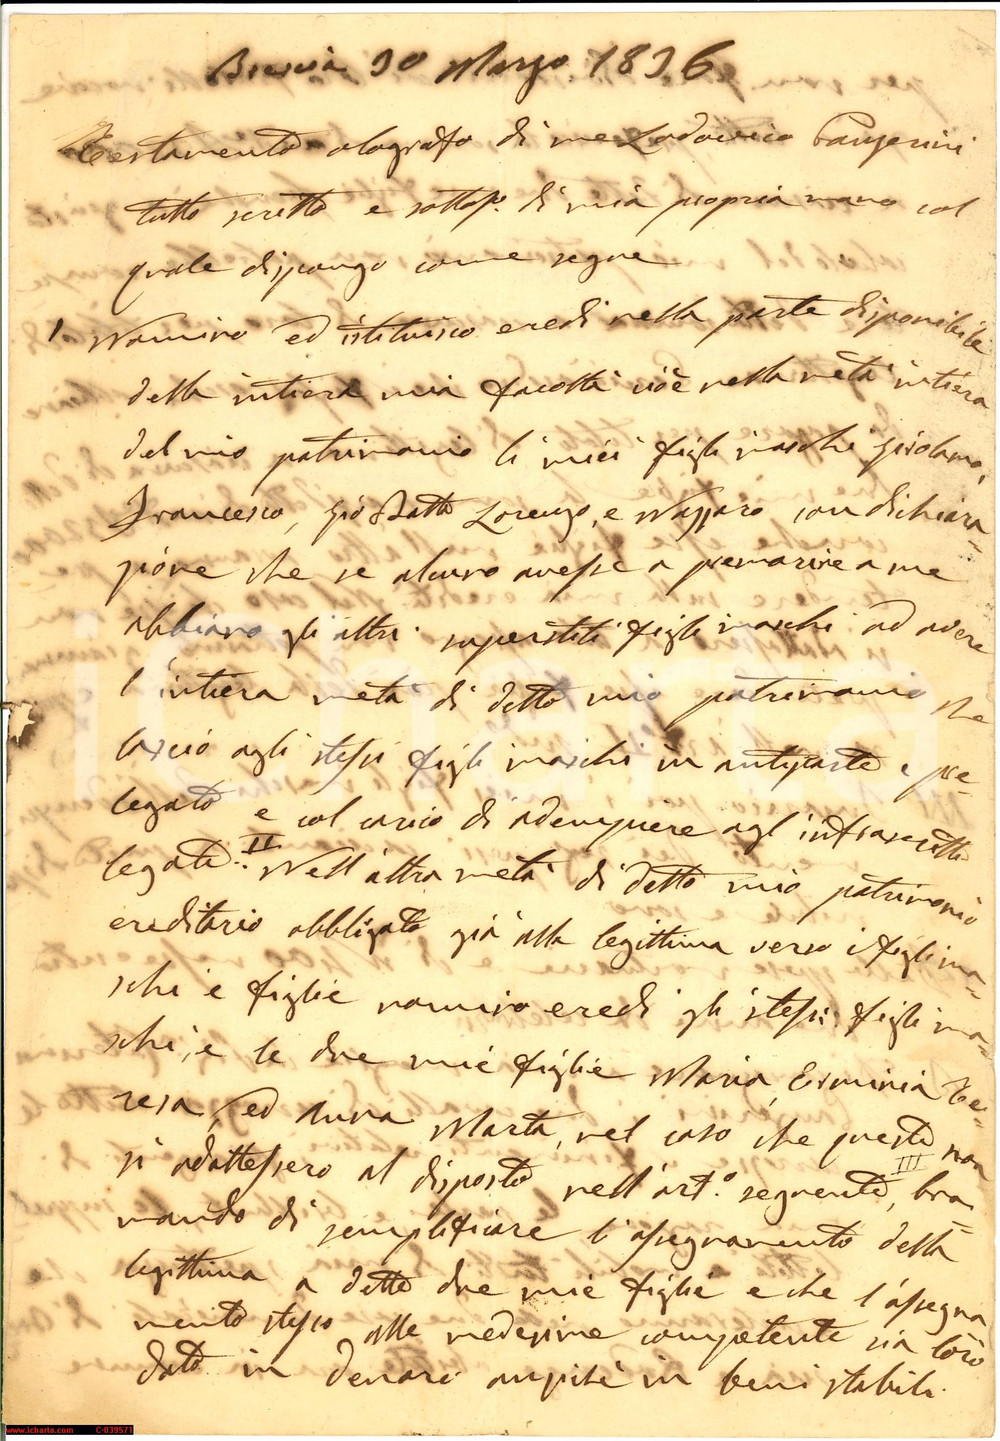 Brescia 30 Marzo 1836
Testamento olografo di me Lodovico
tutto scritto e sottosº. di mia propria mano col
quale dispongo come segue
1 Nomino ed istituisco eredi nella parte disponibile
della intiera mia facoltà cioè nella metà intiera
del mio patrimonio li miei figli maschi Girolamo,
Francesco, Gio Batta Lorenzo, e Nazzaro con dichiara=
zione che se alcuno avesse a premorire a me
abbiano gli altri superstiti figli maschi ad avere
l'intiera metà di detto mio patrimonio che
lascio agli stessi figli maschi in antiparte e pre=
legato e col carico di adempiere agl'infrascritti
legati. II Nell'altra metà di detto mio patrimonio
ereditario obbligato già alla legittima verso i figli ma=
schi e figlie nomino eredi gli stessi figli ma=
schi, e le due mie figlie Maria, Erminia Te=
resa, ed Anna Marta, nel caso che queste non
si adattessero al disposto nell'art.º III seguente, bra=
mando di semplificare l'assegnamento della
legittima a dette due mie figlie e che l'assegna
mento stesso alle medesime competente sia loro
dato in denaro anzichè in beni stabili.
www.icharta.com C-039571